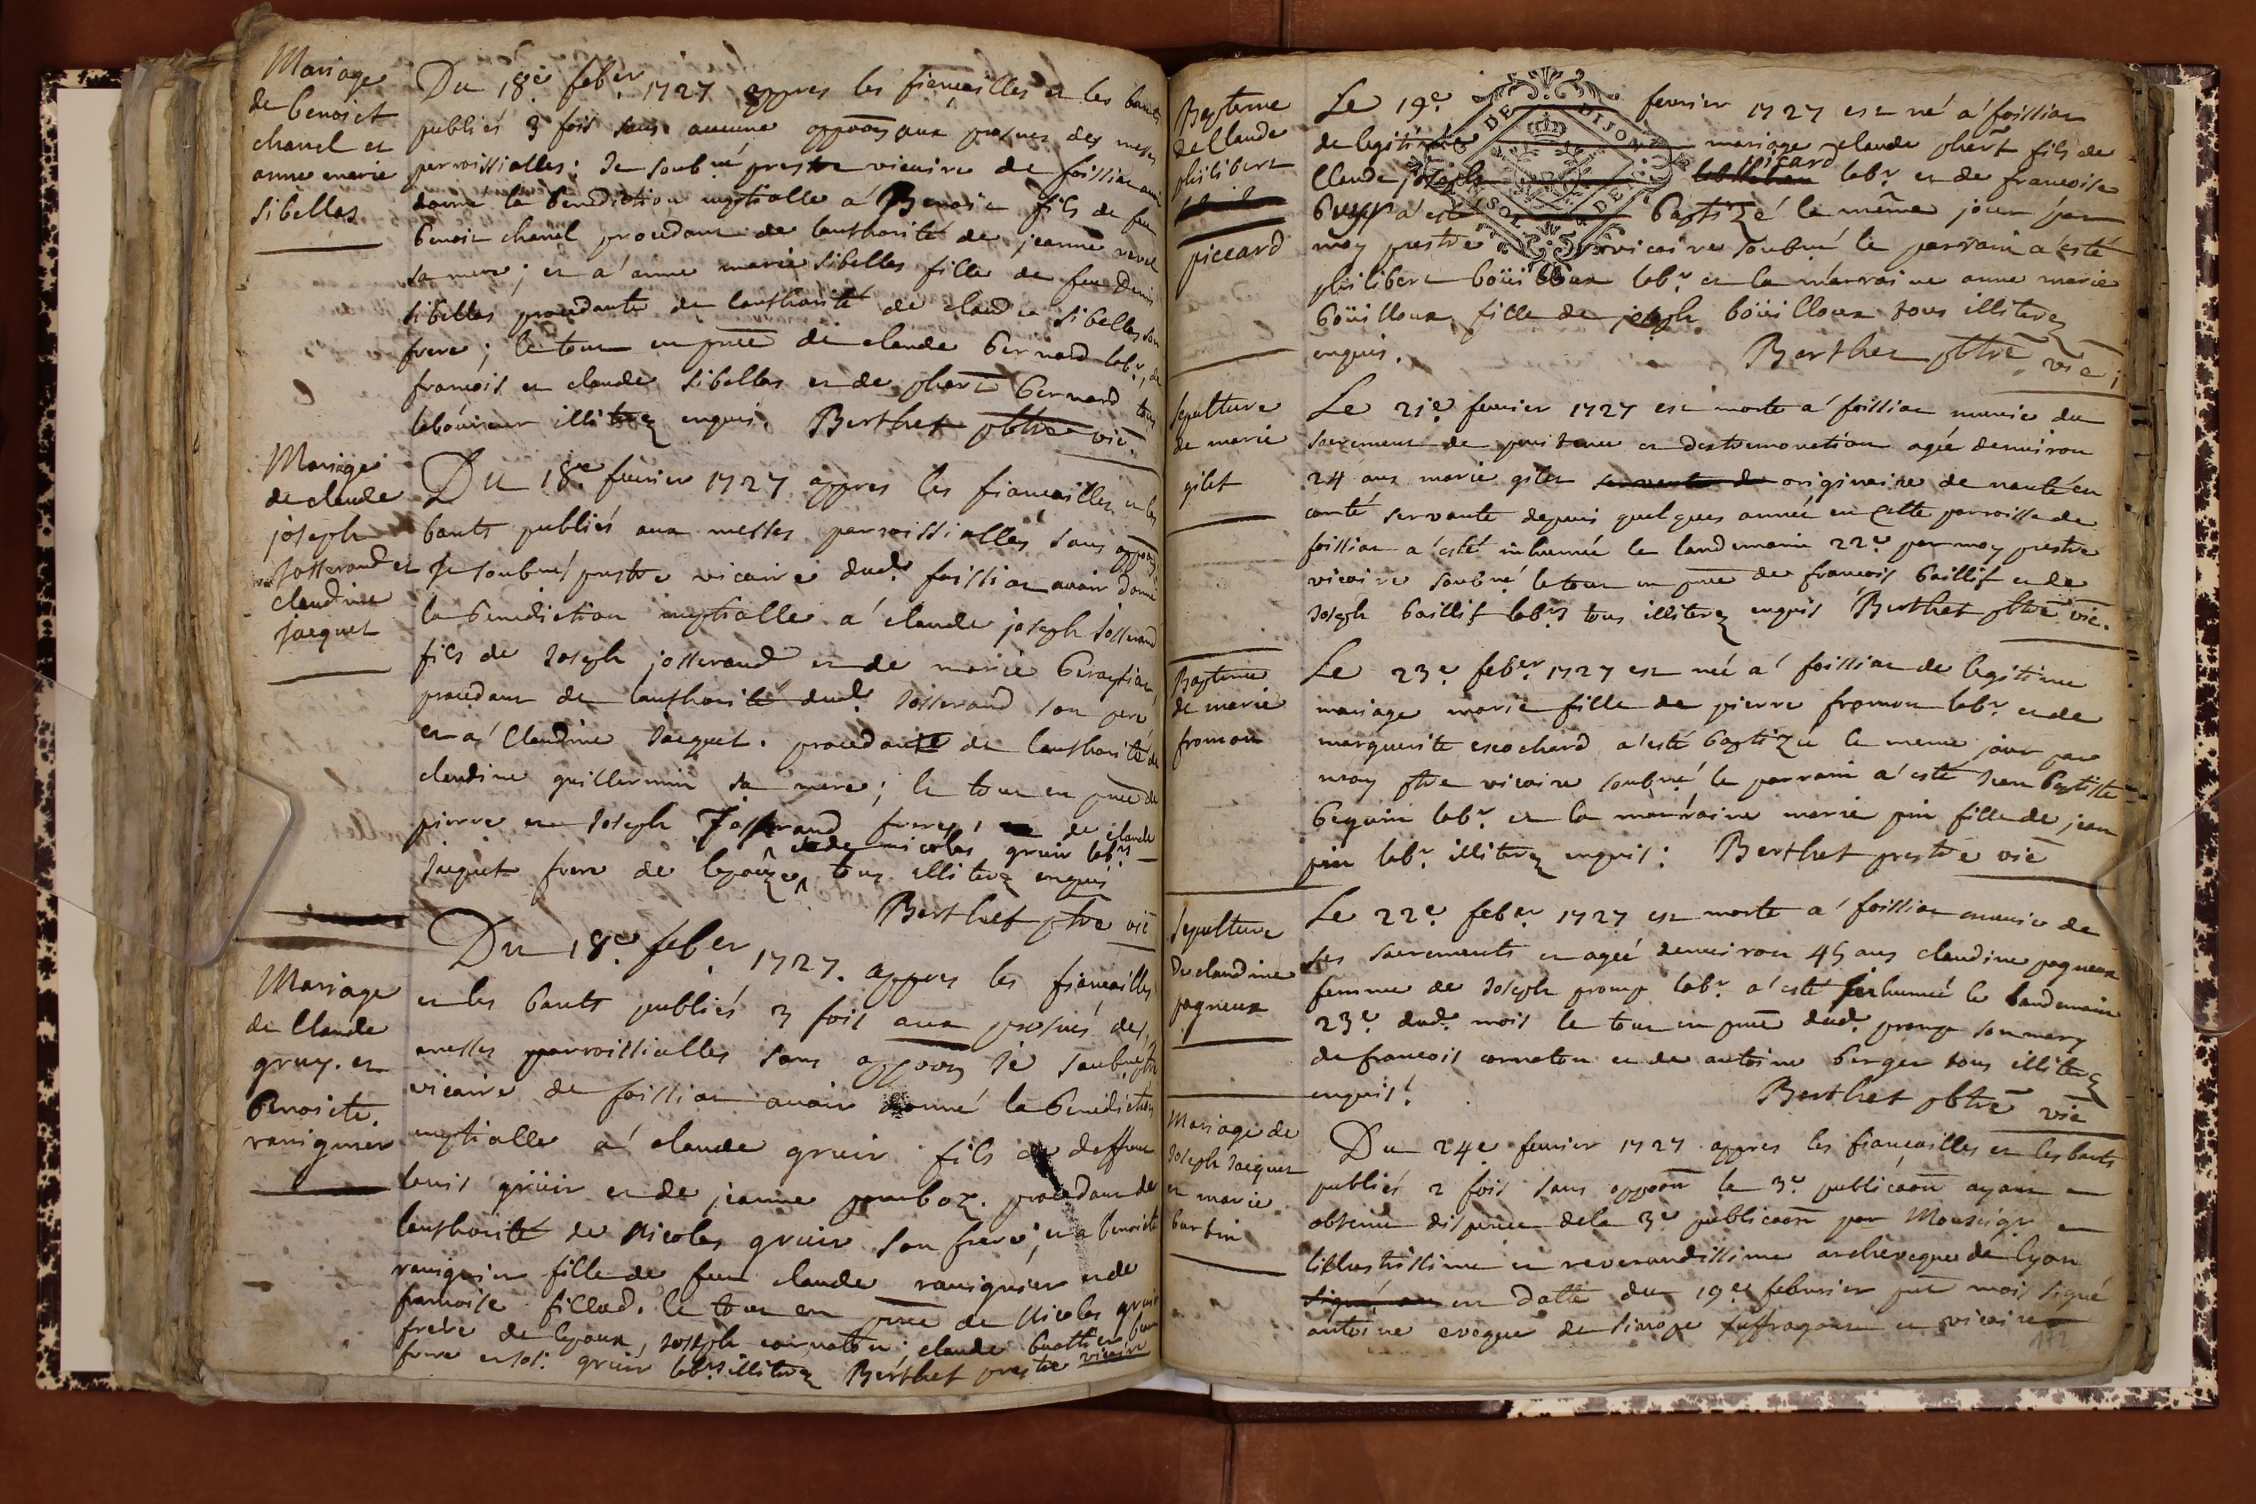 Mariage
de benoict
chanel et
anne marie
sibellas
Du 18e feber 1727 appres les fiençailles et les bants
publiés 3 fois sans aucune oppoon aux prosnes des messes
parroissialles: Je soubné prestre vicaire de foissiat avoir
donné la benediction nuptialle a Benoit fils de feu
benoit chanel procedant de lauthorité de jeanne revel
sa mere; et a anne marie sibellas fille de feu Denis
sibellas procedante de lauthorité de claude sibellas son
frere; le tout en pnce de claude bernard labr, de
francois et claude sibellas et de phbert bernard tous
laboureur illiterez enquis. Berthet pbtre vic.
Mariage
de claude
joseph
Josserand et
claudine
jacquet
Du 18e fevrier 1727 appres les fiançailles et les
bants publiés aux messes parroissialles sans oppoon
Je soubné prestre vicaire dud. foissiat avoir donné
la benediction nuptialle a claude joseph Josserand
fils de Joseph josserand et de marie
procedant de lauthorité dud. Josserand son pere
et a Claudine Jacquet. procedante de lauthorité de
claudine guillermin sa mere; le tout en pnce de
pierre et Joseph Josserand freres, de claude
et de nicolas gruir labrs
Jaquet frere de lepouze, tous illiterez enquis
Berthet pbtre vic
Mariage
de Claude
gruy. et
Benoite.
ravignier
Du 18e feber 1727. appres les fiançailles
et les bants publiés 3 fois aux prosnes des
messes parroissialles sans oppoon Je soubné ptre
vicaire de foissiat avoir donné la benediction
nuptialle a claude gruir fils de deffunt
louis grüir et de jeanne procedant de
lauthorité de Nicolas gruir son frere, et a benoiste
ravignier fille de feu claude ravignier et de
francoise fillod. le tout en pnce de Nicolas gruir
frere de lepoux, Joseph cornaton. claude
frere et Jos. gruir labrs illiterez Berthet prestre vicaire
Bapteme
de Claude
philibert
piccard
Le 19e fevrier 1727 est né a foissiat
de legitime mariage claude phbert fils de
Claude joseph picard labr et de francoise
a esté baptizé le même jour par
moy prestre vicaire soubné le parrain a esté
philibert boüilloux labr et la marraine anne marie
boüilloux fille de joseph boüilloux tous illiterez
enquis. Berthet pbtre vic
Sepulture
de marie
gilet
Le 21e fevrier 1727 est morte a foissiat munie du
sacrement de penitence et dextremonction agée denviron
24 ans marie gilet servante de originaire de en
comté servante depuis quelques année en cette parroisse de
foissiat a esté inhumée le landemain 22e par moy prestre
vicaire soubné le tout en pnce de francois baillif et de
Joseph baillif labrs tous illiterez enquis Berthet pbtre vic.
Bapteme
de marie
fromon
Le 23e feber 1727 est né a foissiat de legitime
mariage marie fille de pierre fromon labr et de
marguerite escochard a esté baptizée le meme jour par
moy ptre vicaire soubné le parrain a esté Jean baptiste
beguin labr et la marraine marie pin fille de jean
pin labr illiterez enquis: Berthet prestre vic
Sepulture
De claudine
pagneux
Le 22e feber 1727 est morte a foissiat munie de
ses sacrements et agée denviron 45 ans claudine pagneux
femme de Joseph promp labr a esté inhumée le landemain
23e dud. mois le tout en pnce dud. promp son mary
de francois cornaton et de antoine berger tous illiterez
enquis! Berthet pbtre vic
Mariage de
Joseph Jacquet
et marie
burtin
Du 24e fevrier 1727 appres les fiançailles et les bants
publiés 2 fois sans oppoon la 3e publicaon ayant
obtenu dispence de la 3e publicaon par Monseigr
lillustrissime et reverandissime archeveque de lyon
en datte du 19e febvrier pnt mois signé
antoine eveque de sinope suffragant et vicaire
172
DE DIJON